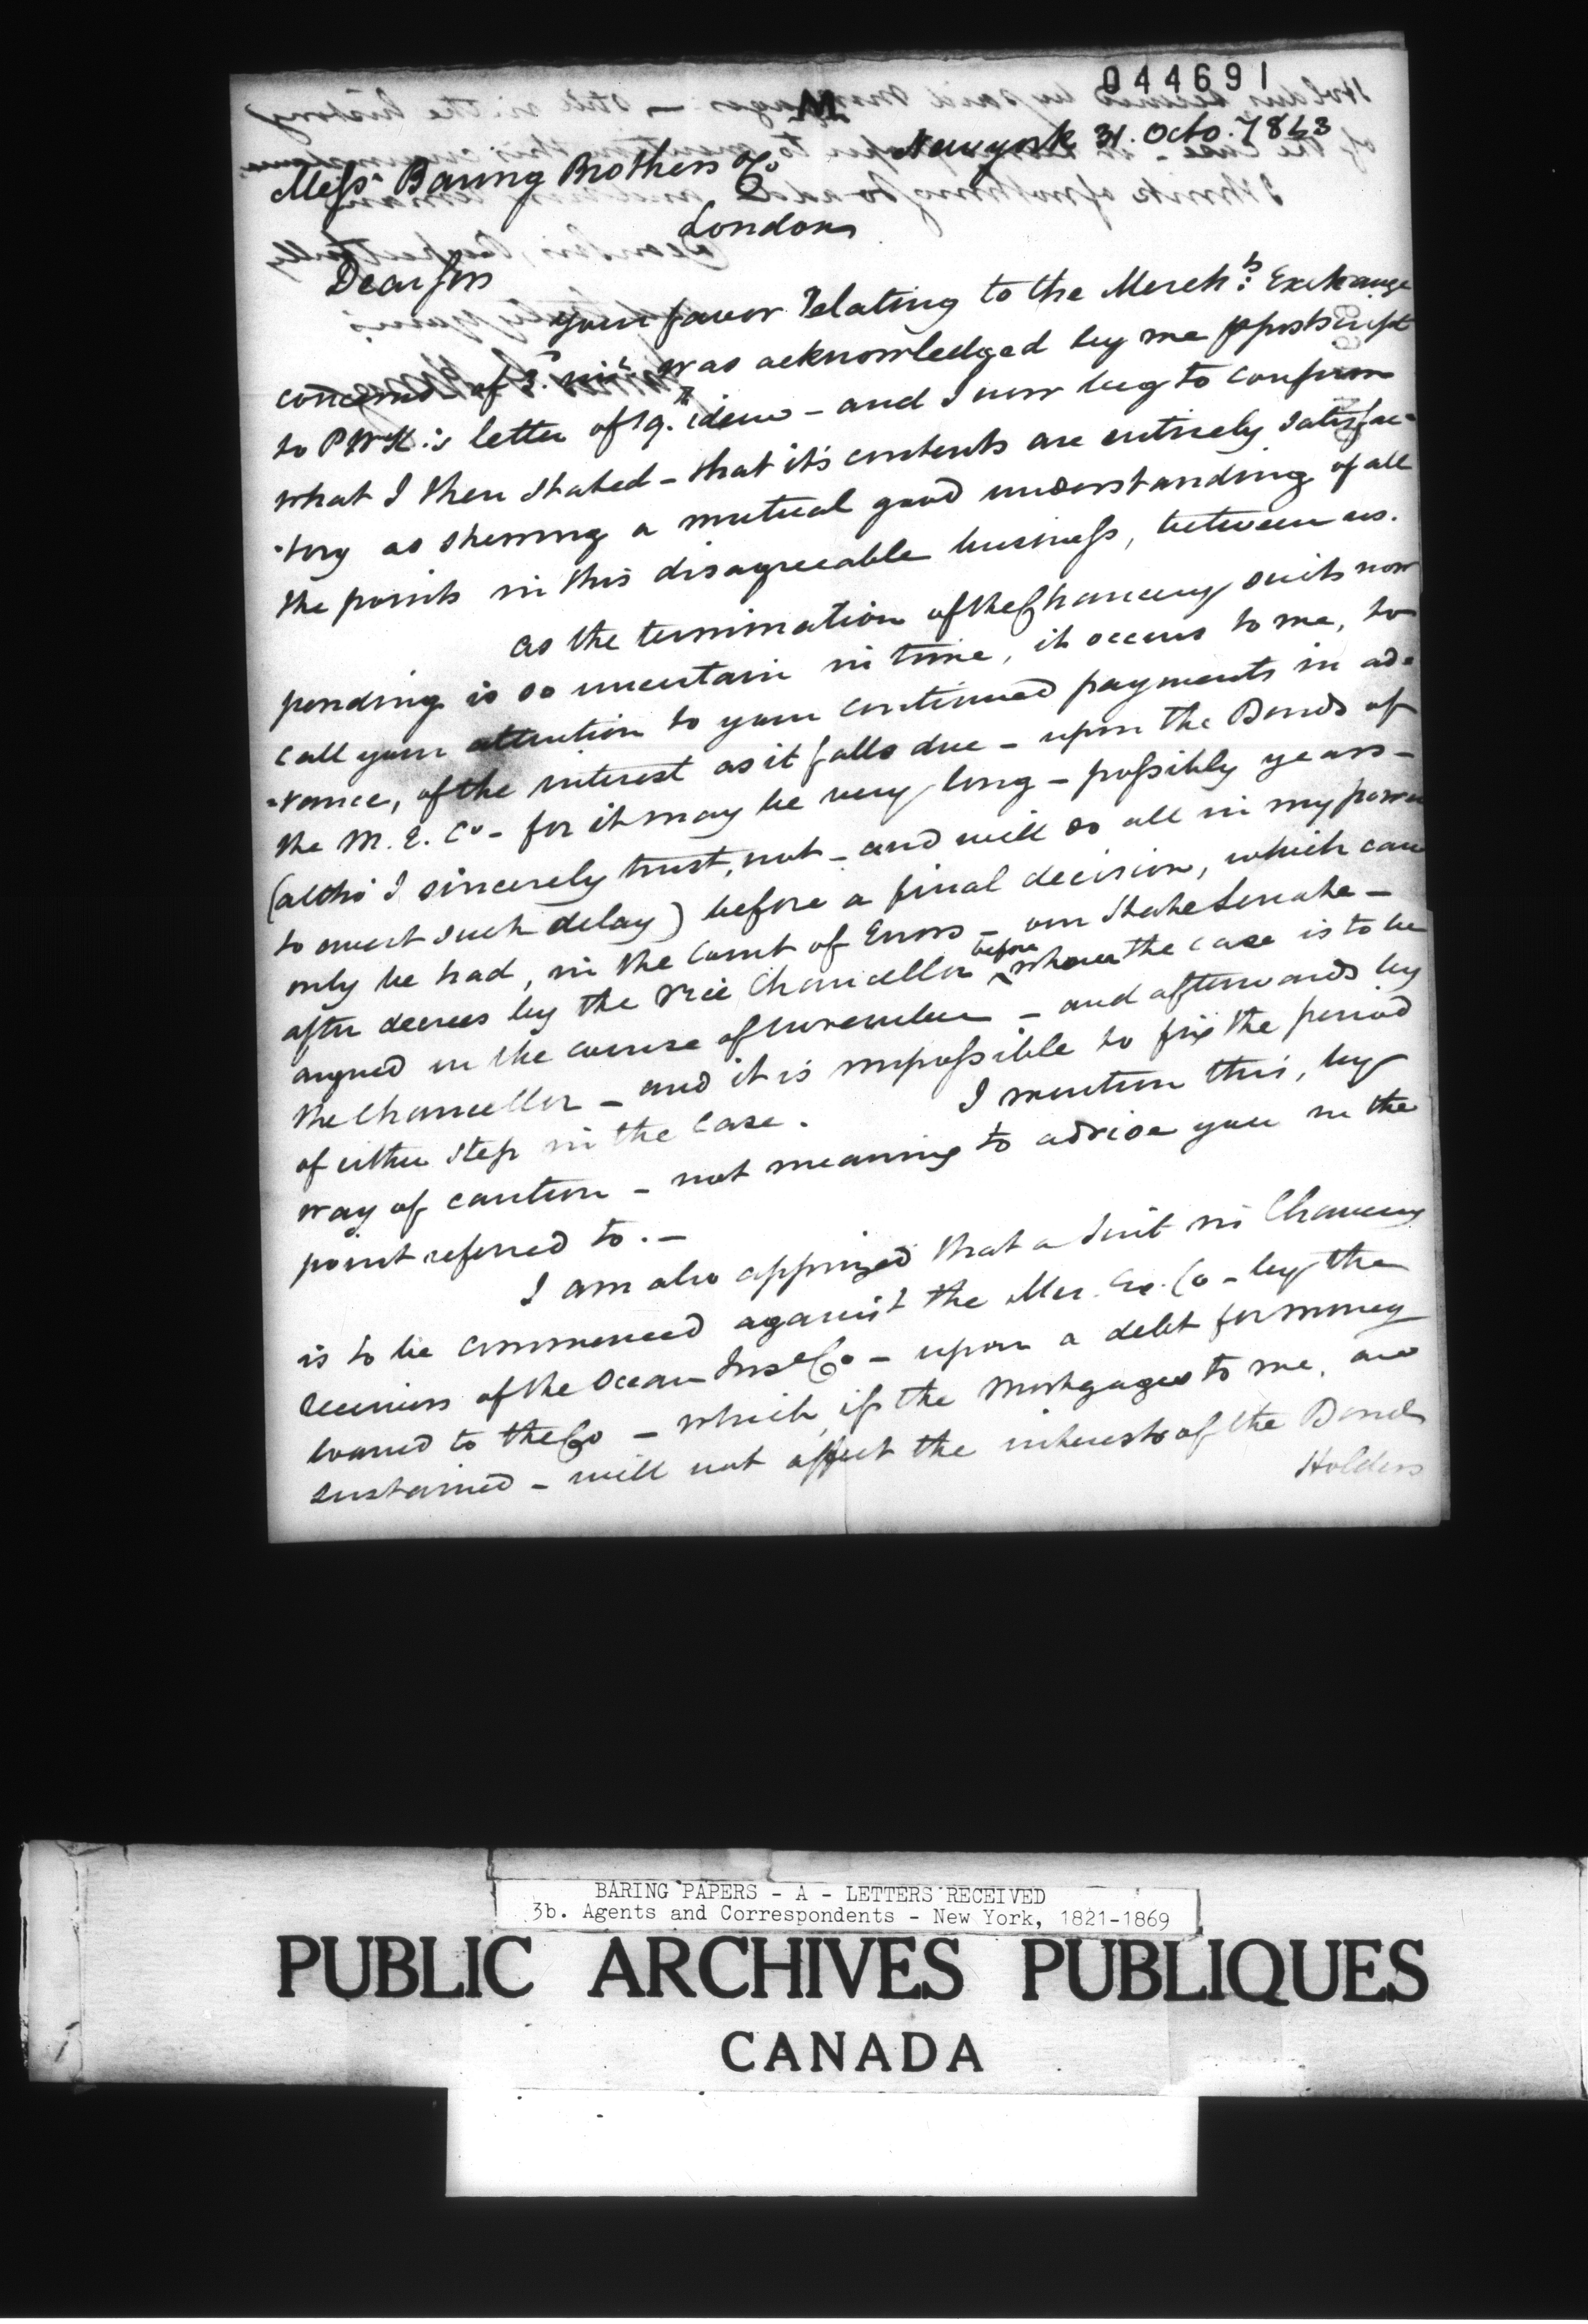 044691
M
Newyork 31. Octo. 1843
Messrs Baring Brothers & Co
London
Dear Sirs
your favor relating to the Mercht:s Exchange
concerns of 3. was acknowledged by me p postscript
to P W K:s letter of 19." idem - and I now beg to confirm
what I then stated - that it's contents are entirely satisfac-
-tory as shewing a mutual good understanding of all
the points in this disagreeable business, between us.
as the termination of the Chancery suits now
pending is so uncertain in time, it occurs to me, to
call your attention to your continued payments in ad-
-vance, of the interest as it falls due - upon the Bonds of
the M. E. Co - for it may be very long - possibly years -
(altho' I sincerely trust, not - and will do all in my power
to avert such delay) before a final decision, which can
only be had, in the Court of Errors - our State Senate -
after decrees by the Vice Chancellor before whom the case is to be
argued in the course of november - and afterwards by
the Chancellor - and it is impossible to fix the period
of either step in the case. I mention this, by
way of caution - not meaning to advise you in the
point referred to. -
I am also apprized that a suit in Chancery
is to be commenced against the Mer. Ex. Co - by the
receivers of the Ocean Inse Co - upon a debt for money
loaned to the Co - which, if the mortgages to me, are
sustained - will not affect the interests of the Bond
Holders
BARING PAPERS - A - LETTERS RECEIVED
3b. Agents and Correspondents - New York, 1821-1869
PUBLIC ARCHIVES PUBLIQUES
CANADA